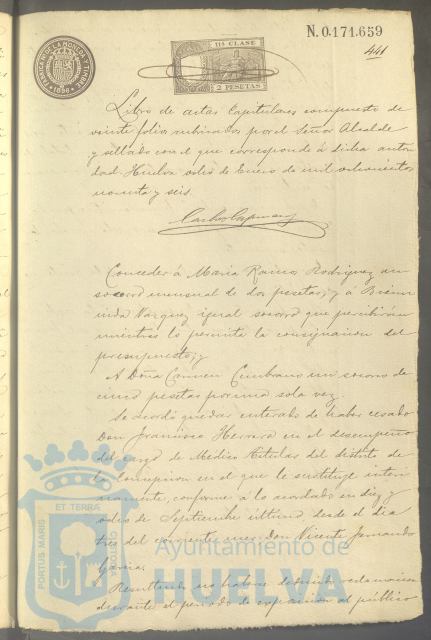 N. 0.171.659
441
FABRICA DE LA MONEDA Y TIMBRE
1896
11ª CLASE
2 PESETAS
Libro de actas Capitulares compuesto de
veinte folios rubricados por el Señor Alcalde
y sellado con el que corresponde á dicha autori
dad. Huelva ocho de Enero de mil ochocientos
noventa y seis.
Conceder á Maria Ramos Rodriguez un
socorro mensual de dos pesetas, y á Bienve
nida Vazquez igual socorro que percibirán
mientras lo permita la consignacion del
presupuesto; y
A Doña Carmen Cumbrano un socorro de
cinco pesetas por una sola vez.
Se acordó quedar enterado de haber cesado
Don Francisco Herrera en el desempeño
del cargo de Médico titular del distrito de
la Concepcion en el que le sustituye interi
namente, conforme a lo acordado en diez y
ocho de Septiembre último desde el dia
tres del corriente mes don Vicente Fernando
Garcia.
Resultando no haberse deducido reclamacion
durante el periodo de exposicion al público
PORTUS MARIS ET TERRAE CUSTODIA
Ayuntamiento de
HUELVA